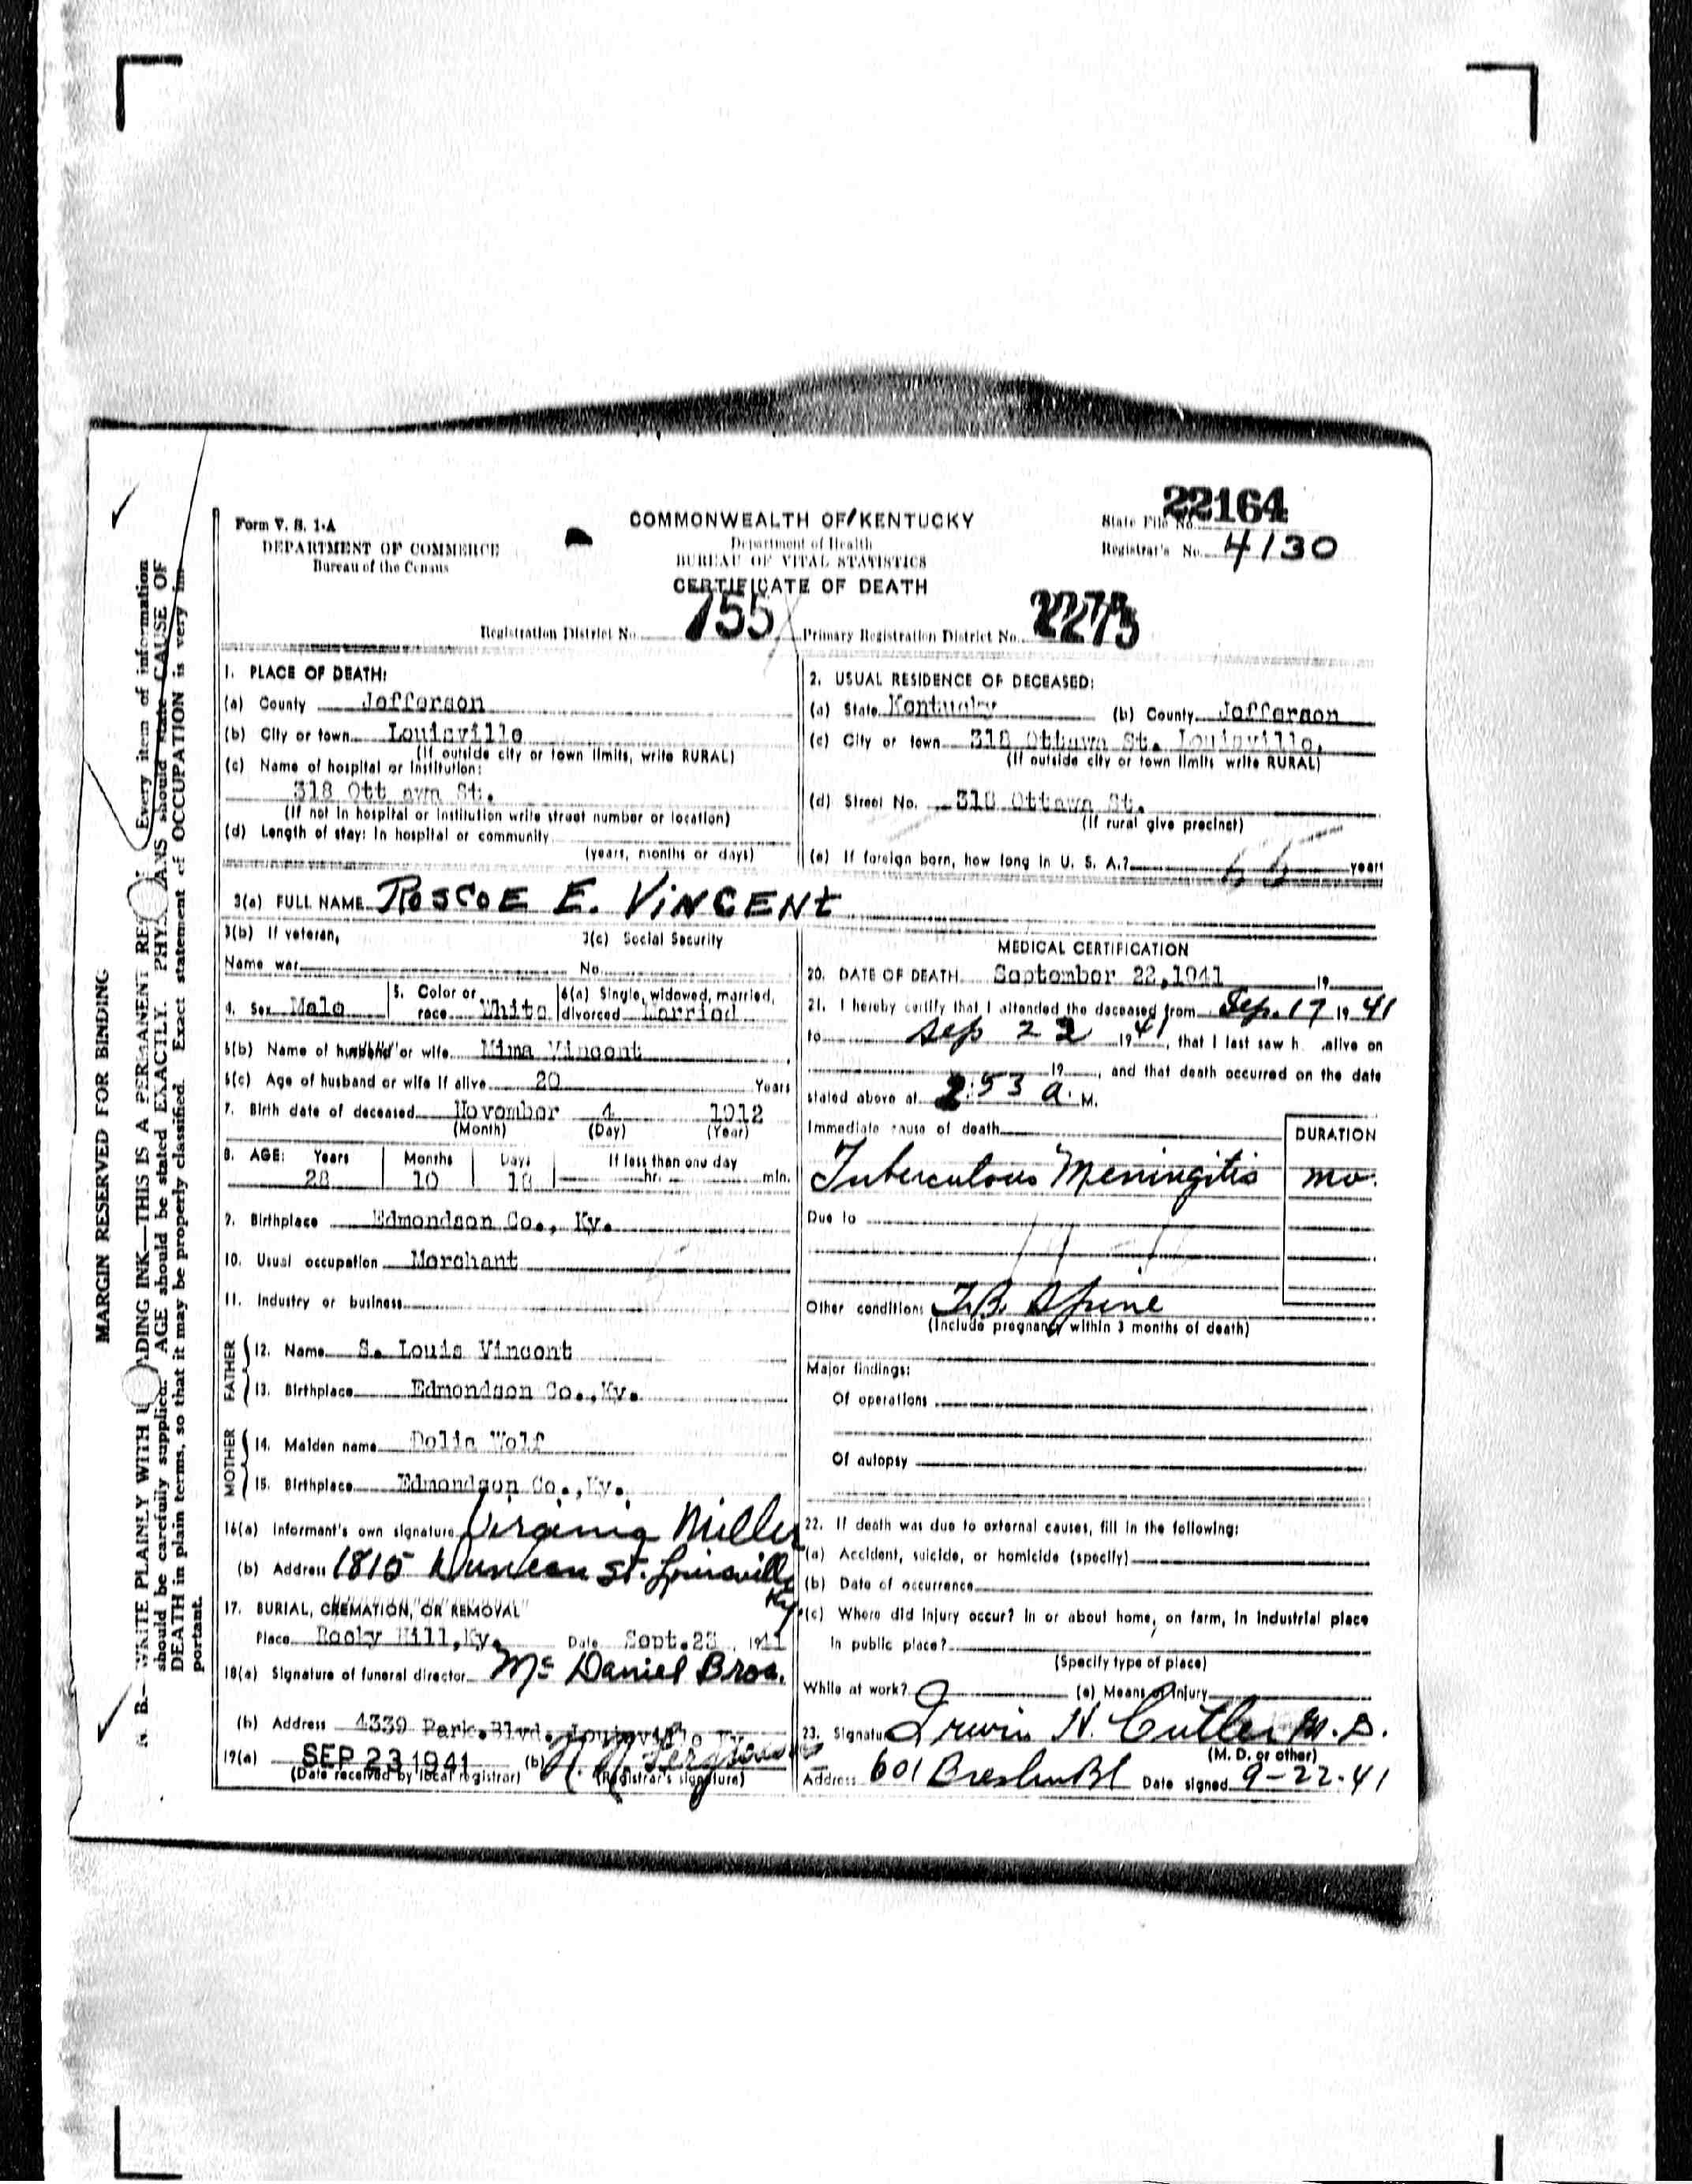 22164
Form V. S. 1-A
COMMONWEALTH OF KENTUCKY
State File No.
DEPARTMENT OF COMMERCE
Department of Health
Registrar's No. 4130
Bureau of the Census
BUREAU OF VITAL STATISTICS
CERTIFICATE OF DEATH
Registration District No. 755 Primary Registration District No.
1. PLACE OF DEATH:
(a) County Jefferson
(b) City or town Louisville
(If outside city or town limits, write RURAL)
(c) Name of hospital or institution:
318 Ott awa St.
(If not in hospital or institution write street number or location)
(d) Length of stay: In hospital or community
(years, months or days)
2. USUAL RESIDENCE OF DECEASED:
(a) State Kentucky (b) County Jefferson
(c) City or town 318 Ottawa St. Louisville,
(If outside city or town limits write RURAL)
(d) Street No. 318 Ottawa St.
(If rural give precinct)
(e) If foreign born, how long in U. S. A.? years
3(a) FULL NAME ROSCOE E. VINCENT
3(b) If veteran, 3(c) Social Security
Name war No.
4. Sex Male 5. Color or race White 6(a) Single, widowed, married, divorced Married
6(b) Name of husband or wife Mima Vincent
6(c) Age of husband or wife if alive 20 Years
7. Birth date of deceased November 4 1912
(Month) (Day) (Year)
8. AGE: Years Months Days If less than one day
28 10 18 hr. min.
9. Birthplace Edmondson Co., Ky.
10. Usual occupation Merchant
11. Industry or business
FATHER
12. Name S. Louis Vincent
13. Birthplace Edmondson Co., Ky.
MOTHER
14. Maiden name Wolf
15. Birthplace Edmondson Co., Ky.
16(a) Informant's own signature Virginia Miller
(b) Address 1815 Duncan St. Louisville
Ky.
17. BURIAL, CREMATION, OR REMOVAL
Place Rocky Hill, Ky. Date Sept. 1941
18(a) Signature of funeral director Mc Daniel Bros.
(b) Address 4339 Park. Blvd. Louisville Ky.
19(a) SEP 23 1941 (b)
(Date received by local registrar) (Registrar's signature)
MEDICAL CERTIFICATION
20. DATE OF DEATH September 22, 1941 19
21. I hereby certify that I attended the deceased from Sep. 17 19 41
to Sep 22 19 41, that I last saw h alive on
19 , and that death occurred on the date
stated above at 2:53 a. M.
Immediate cause of death
DURATION
Tuberculous Meningitis mo.
Due to
Other conditions T.B. Spine
(Include pregnancy within 3 months of death)
Major findings:
Of operations
Of autopsy
22. If death was due to external causes, fill in the following:
(a) Accident, suicide, or homicide (specify)
(b) Date of occurrence
(c) Where did injury occur? In or about home, on farm, in industrial place
in public place?
(Specify type of place)
While at work? (e) Means of Injury
23. Signature Irwin H. Cutler M.D.
(M. D. or other)
Address 601 Date signed 9-22-41
MARGIN RESERVED FOR BINDING
N. B.—WRITE PLAINLY WITH ADING INK—THIS IS A PERMANENT REC Every item of information
should be carefully supplied. AGE should be stated EXACTLY. PHYSICIANS should state CAUSE OF
DEATH in plain terms, so that it may be properly classified. Exact statement of OCCUPATION is very im-
portant.